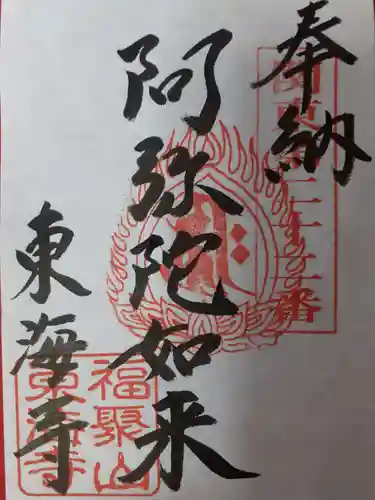 奉納
阿弥陀如来
東海寺
福聚山
東海寺